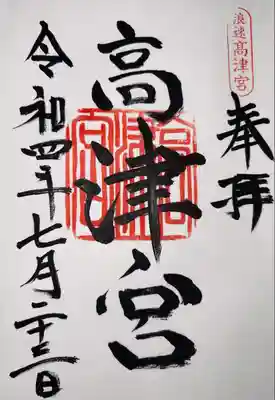 浪速高津宮
奉拝
高津宮
令和四年七月二十三日